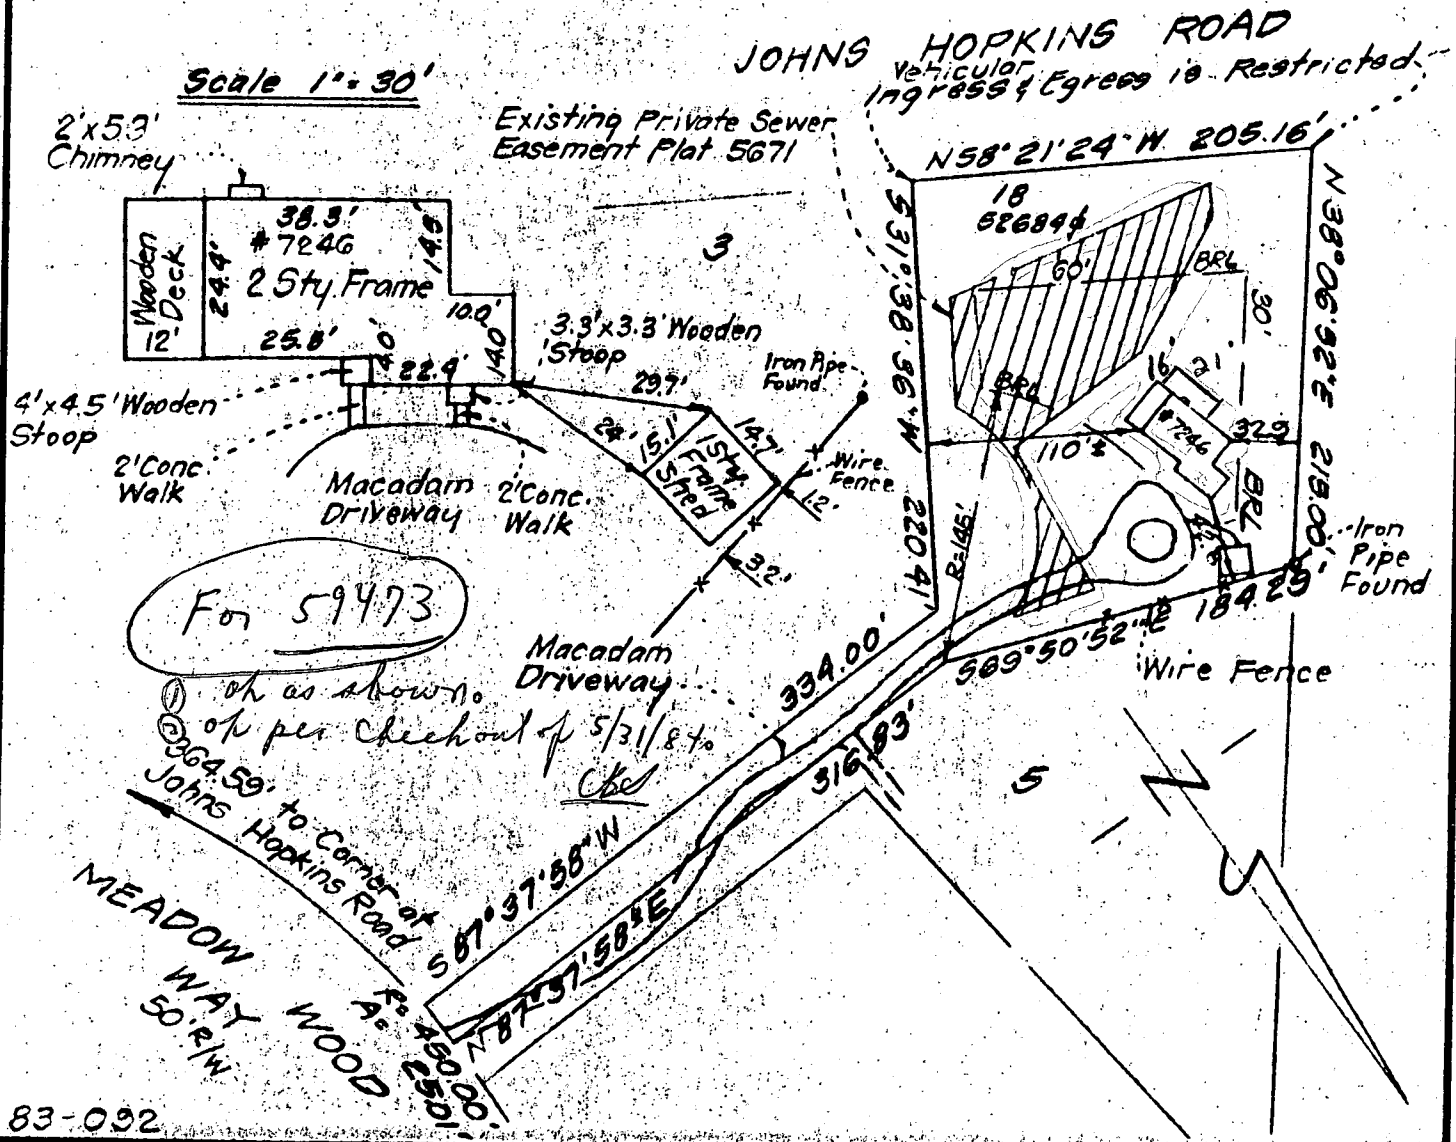 JOHNS HOPKINS ROAD
Vehicular
Ingress & Egress is Restricted
Scale 1"= 30'
2'x5.3'
Chimney
Existing Private Sewer
Easement Plat 5671
N58°21'24"W 205.16'
18
52684
3
38.3'
#7246
2 Sty. Frame
Wooden
Deck
12'
24.4'
14.5'
10.0'
14.0'
25.8'
4.0'
22.4'
3.3'x3.3' Wooden
Stoop
4'x4.5' Wooden
Stoop
2' Conc.
Walk
Macadam
Driveway
2' Conc.
Walk
29.7'
24'
15.1'
14.7'
1 Sty.
Frame
Shed
Iron Pipe
Found
Wire
Fence
1.2'
3.2'
S31°38'36"W 220.41
60'
BRL
30'
BRL
16'
#7246
32.9
110'±
BRL
R=145'
N38°06'32"E 219.00'
Iron
Pipe
Found
S69°50'52"E 184.29'
Wire Fence
For 59473
① ok as shown.
② ok per checkout of 5/31/84
Macadam
Driveway
334.00'
316.83'
5
364.59' to Corner at
Johns Hopkins Road
S87°37'58"W
N87°37'58"E
MEADOW
WOOD
WAY
50' R/W
R= 450.00'
A= 25.01'
N
83-092